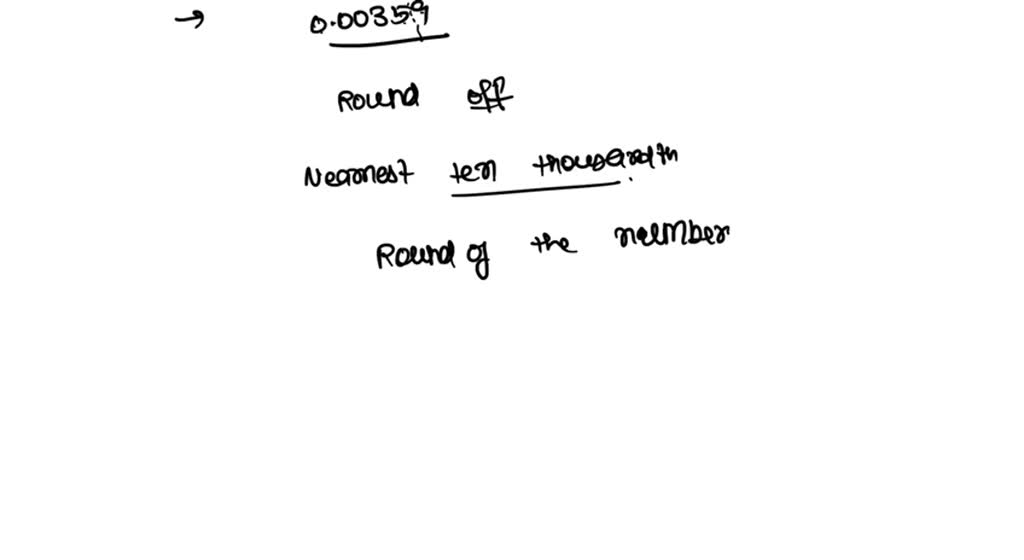 → 0.00359
Round off
Nearest ten thousandth
Round of the number